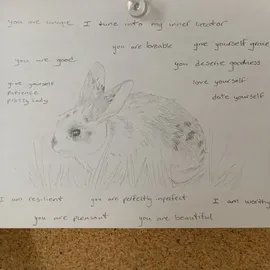 you are unique    I tune into my inner creator
you are lovable    give yourself grace
you are good    you deserve goodness
give yourself
patience
pretty lady
love yourself
date yourself
I am resilient    you are perfectly inperfect    I am worthy
you are pleasant    you are beautiful